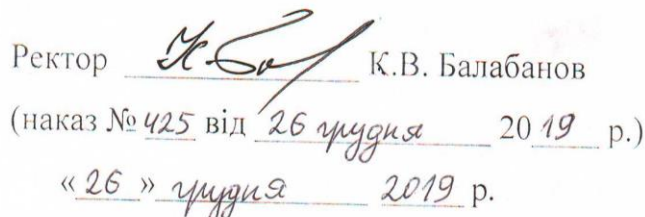 Ректор К.В. Балабанов
(наказ № 425 від 26 грудня 2019 р.)
«26» грудня 2019 р.